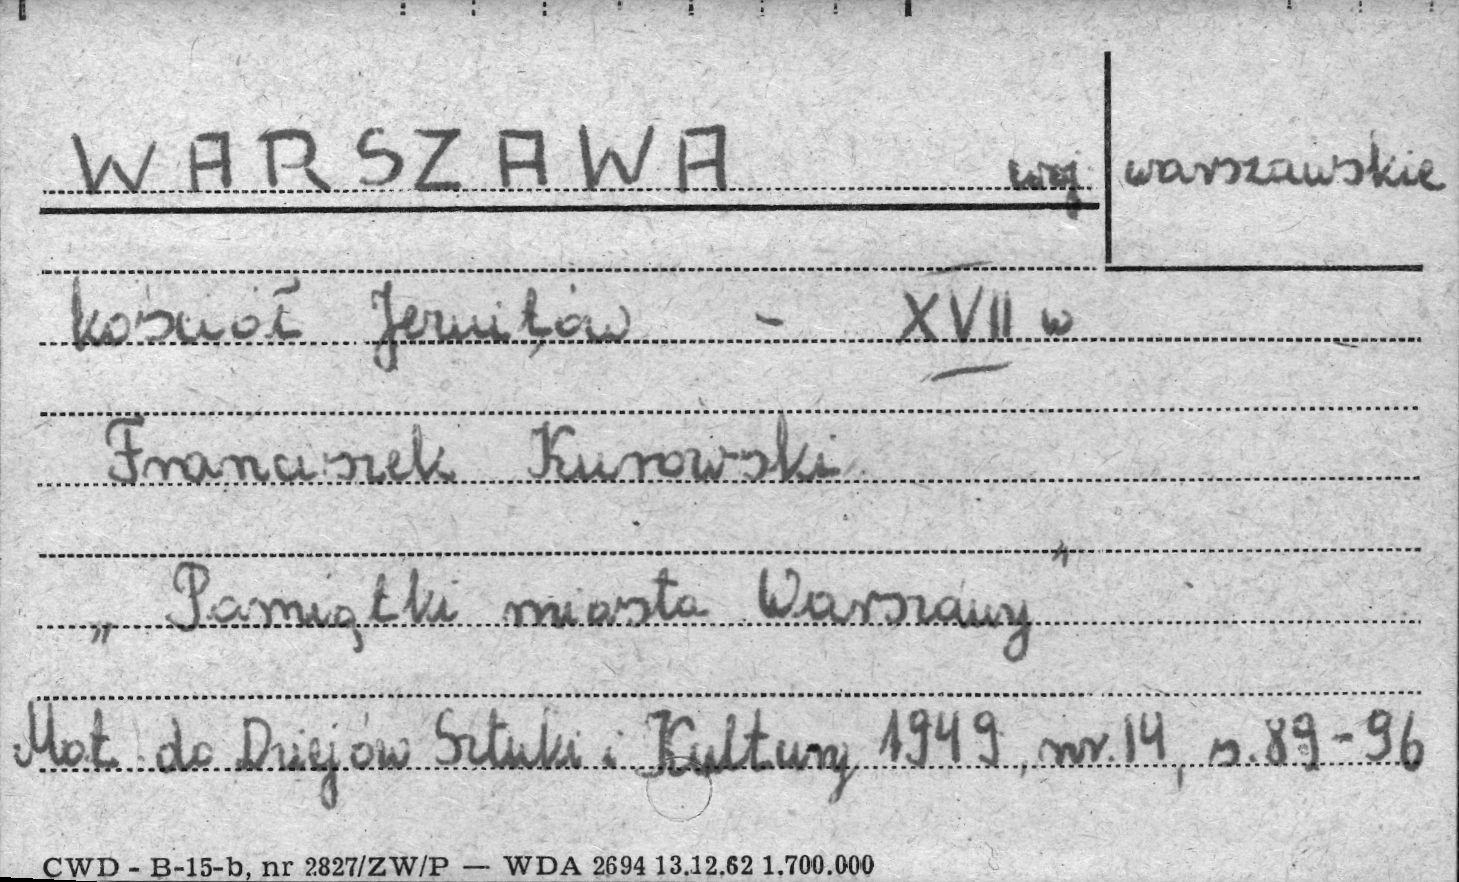 WARSZAWA woj warszawskie
kościół Jezuitów - XVII w
Franciszek Kurowski
„Pamiątki miasta Warszawy"
Mat. do Dziejów Sztuki i Kultury 1949, nr. 14, s. 89-96
CWD - B-15-b, nr 2827/ZW/P — WDA 2694 13.12.62 1.700.000